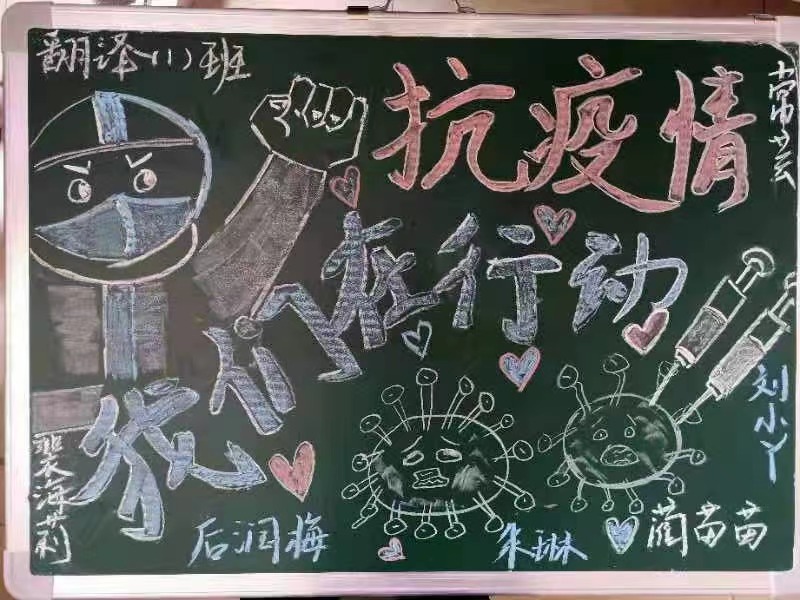 翻译(1)班
抗疫情
我们在行动
常芸
刘小丫
裴海莉
后润梅
朱琳
蔺苗苗